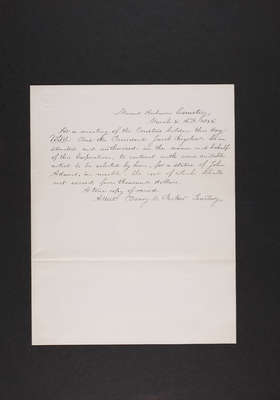 Mount Auburn Cemetery,
March
At a meeting of the Trustees holden this day
Voted That the President Jacob Bigelow
and authorized, in the name and behalf
of this Corporation, to contract with some suitable
artist to be selected by him, for a statue of John
Adams, in marble, the cost of which shall
not exceed four thousand dollars.
A true copy of record.
Attest Henry M. Parker Secretary.